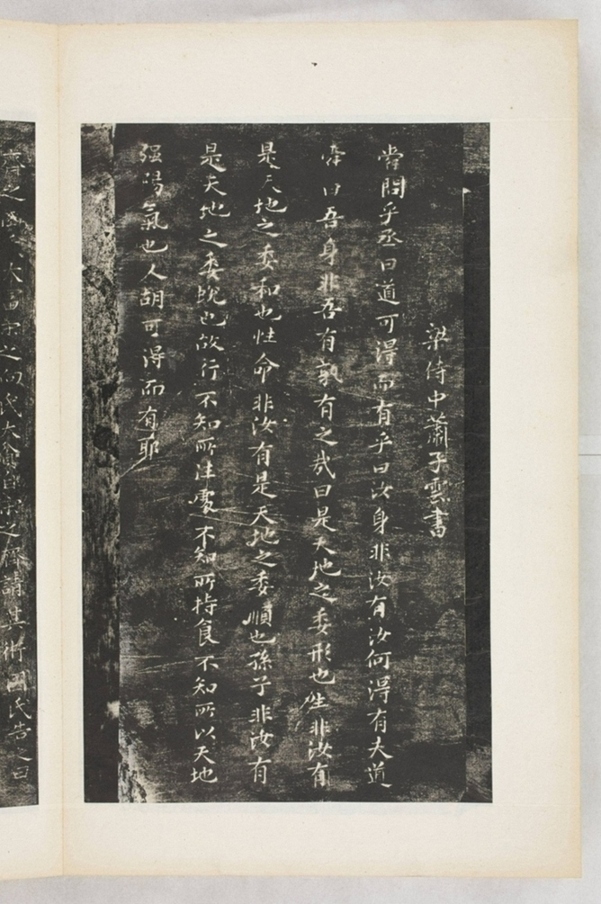 梁侍中蕭子雲書
舜問乎丞曰道可得而有乎曰汝身非汝有汝何得有夫道
舜曰吾身非吾有孰有之哉曰是天地之委形也生非汝有
是天地之委和也性命非汝有是天地之委順也孫子非汝有
是天地之委蛻也故行不知所往處不知所持食不知所以天地
强陽氣也人胡可得而有耶
齊之國大富宋之向氏大貧自宋之齊請其術國氏告之曰